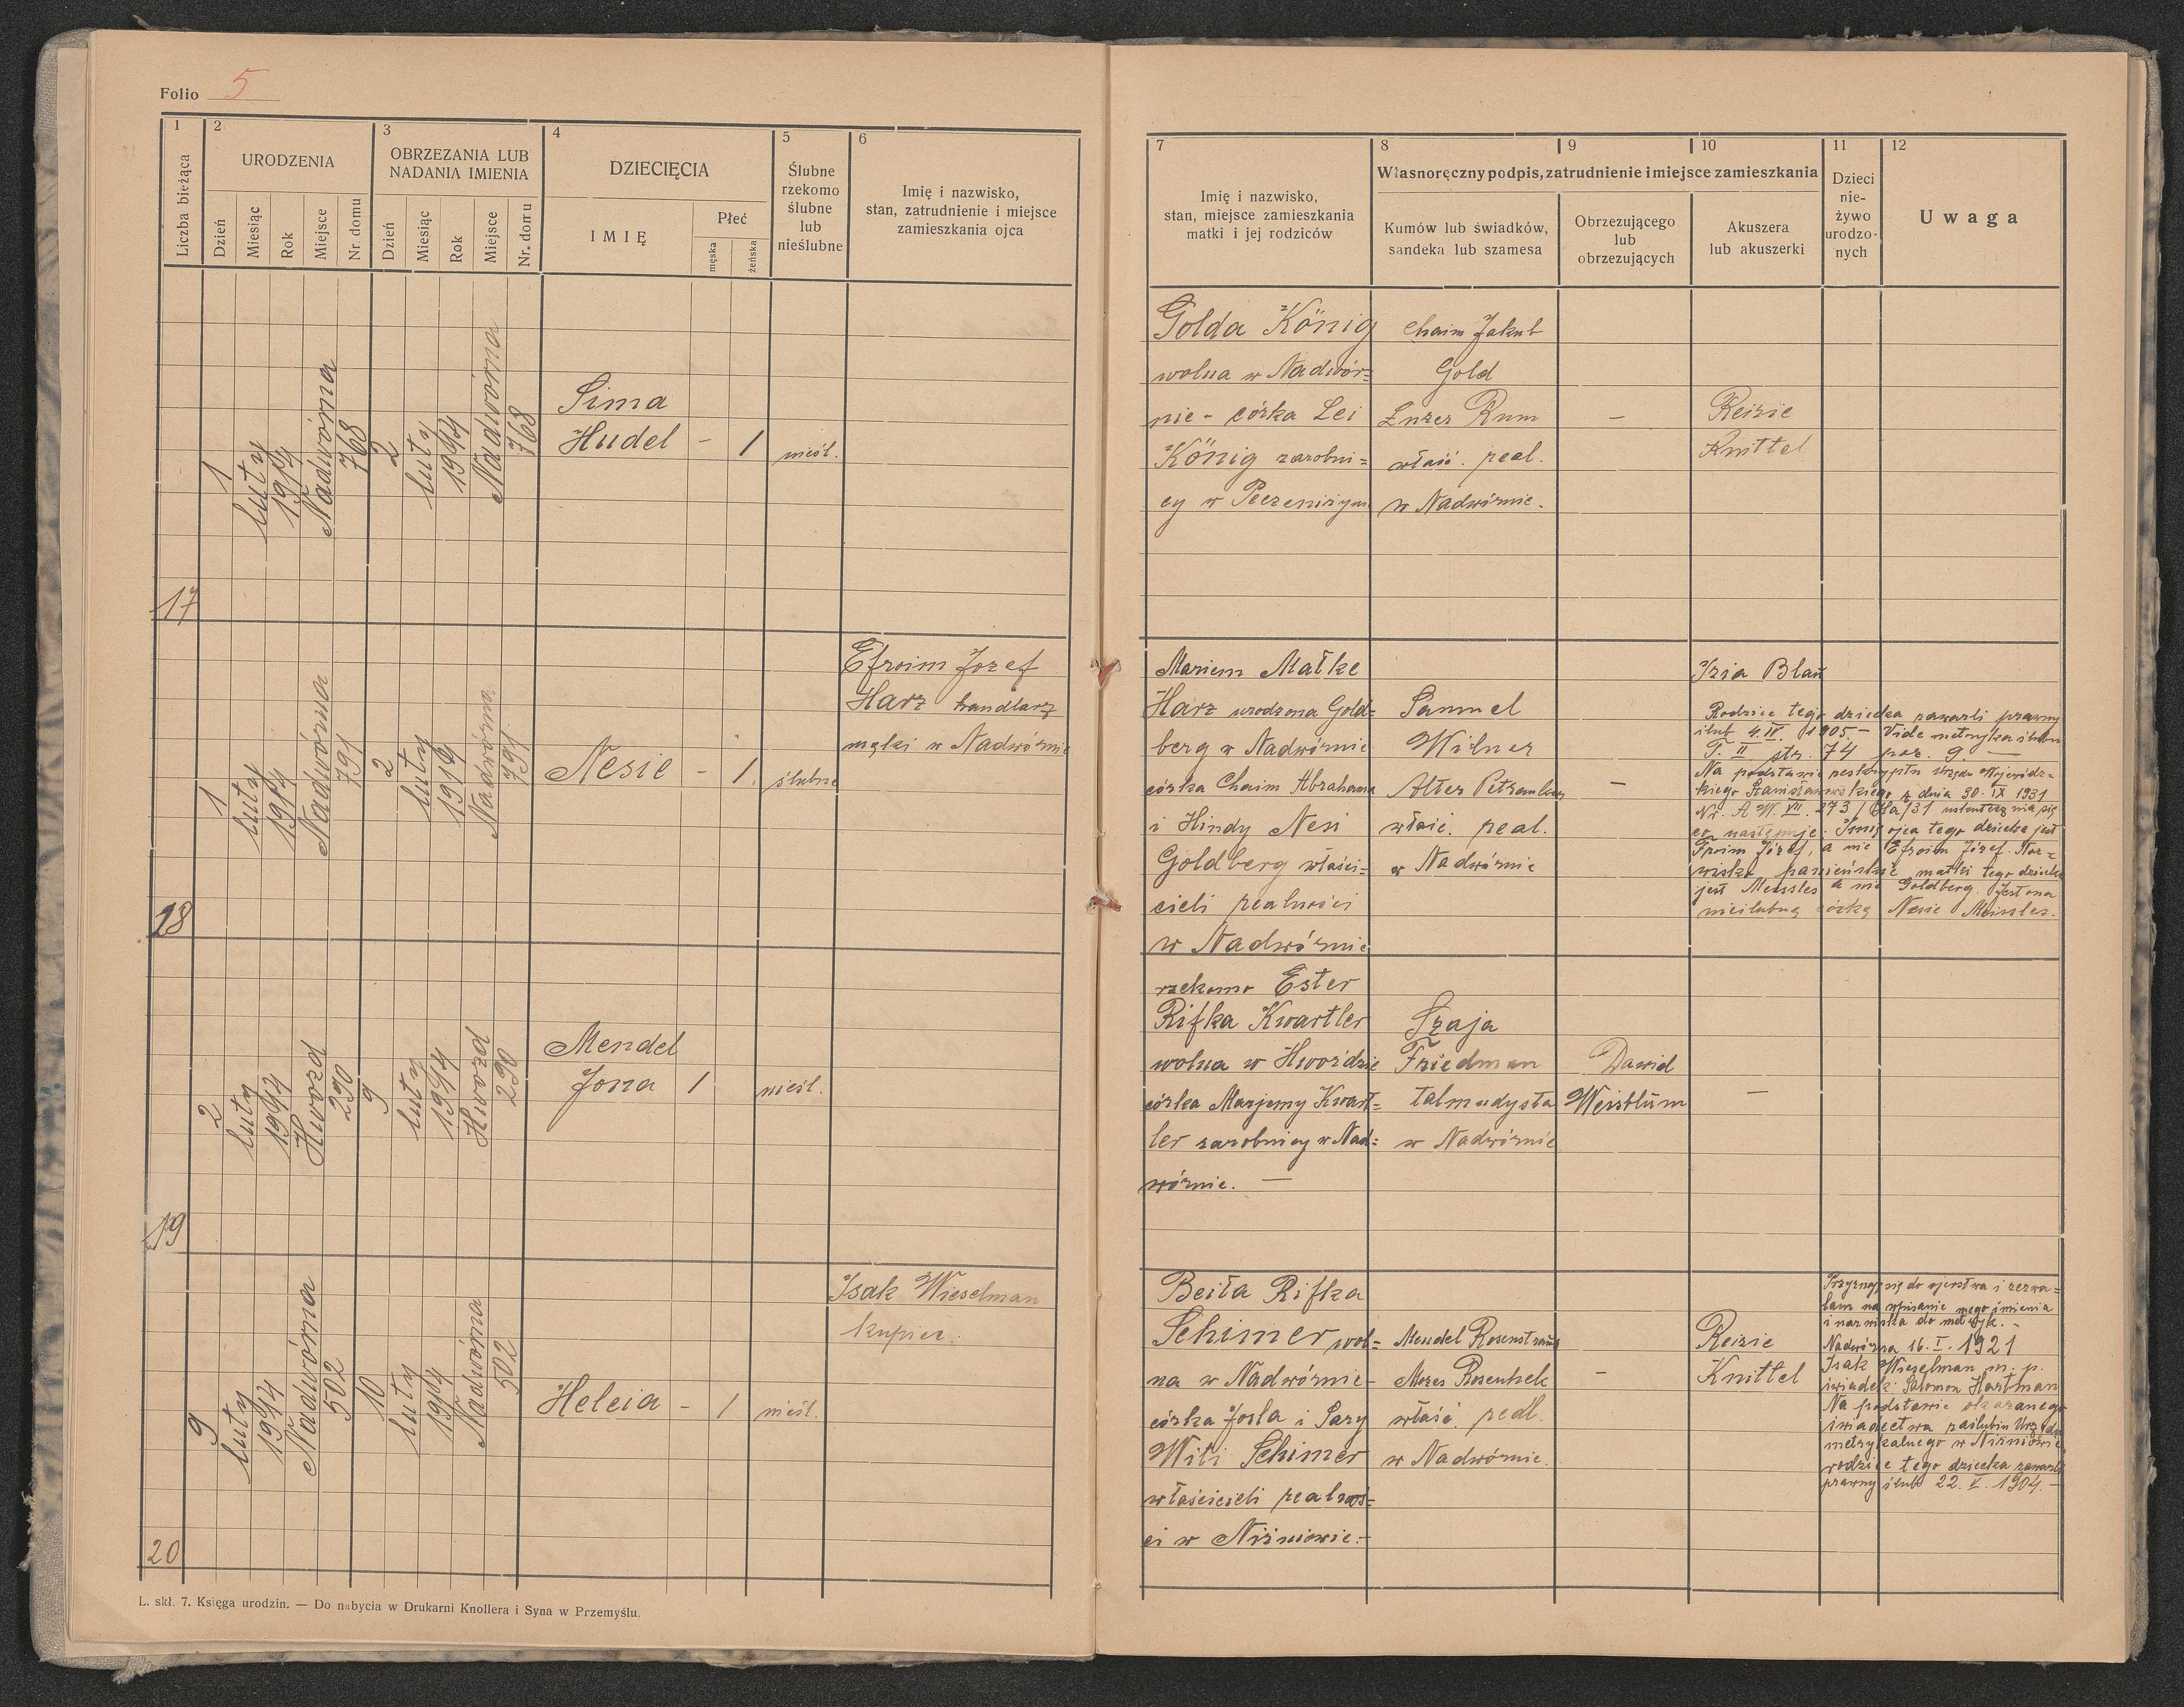 Folio 5
1
2
URODZENIA
3
OBRZEZANIA LUB
NADANIA IMIENIA
4
DZIECIĘCIA
5
Ślubne
rzekomo
ślubne
lub
nieślubne
6
Imię i nazwisko,
stan, zatrudnienie i miejsce
zamieszkania ojca
Liczba bieżąca
Dzień
Miesiąc
Rok
Miejsce
Nr. domu
Dzień
Miesiąc
Rok
Miejsce
Nr. domu
IMIĘ
Płeć
męska
żeńska
7
Imię i nazwisko,
stan, miejsce zamieszkania
matki i jej rodziców
8
9
10
Własnoręczny podpis, zatrudnienie i miejsce zamieszkania
Kumów lub świadków,
sandeka lub szamesa
Obrzezującego
lub
obrzezujących
Akuszera
lub akuszerki
11
Dzieci
nie-
żywo
urodzo-
nych
12
Uwaga
17
1
luty
1914
Nadwórna
768
2
luty
1914
Nadwórna
768
Sima
Hudel - 1
nieśl.
Golda König
wolna w Nadwór=
nie - córka Lei
König zarobni=
cy w Peczeniżynie
Chaim Jakub
Gold
Łuzer Rum
właść. real.
w Nadwórnie.
-
Reizie
Knittel
18
1
luty
1914
Nadwórna
791
2
luty
1914
Nadwórna
791
Nesie - 1.
ślubne
Efroim Jozef
Harz handlarz
mąki w Nadwórnie
Mariem Małke
Harz urodzona Gold=
berg w Nadwórnie
córka Chaim Abrahama
i Hindy Nesi
Goldberg właści=
cieli realności
w Nadwórnie
Samuel
Wilner
Alter
właść. real.
w Nadwórnie
-
Izia Blaŭ
Rodzice tego dziecka zawarli prawny
ślub 4. IV. 1905. - Vide metryka ślubu
T. II str. 74 poz. 9. -
Na podstawie reskryptu Urzędu Wojewódz=
kiego Stanisławowskiego z dnia 30. IX 1931
Nr. A. W. VII. 273/ /31 uskutecznia się
co następuje: Imię ojca tego dziecka jest
Froim Józef, a nie Efroim Józef. Naz=
wisko panieńskie matki tego dziecka
jest Meissles a nie Goldberg. Jest ona
nieślubną córką Nesie Meissles.
19
2
luty
1914
Hwozd
290
9
luty
1914
Hwozd
290
Mendel
Jona 1
nieśl.
rzekomo Ester
Rifka Kwartler
wolna w Hwoździe
córka Marjemy Kwart=
ler zarobnicy w Nad=
wórnie. -
Szaja
Friedman
talmudysta
w Nadwórnie
Dawid
Weisblŭm
-
20
9
luty
1914
Nadwórna
502
10
luty
1914
Nadwórna
502
Heleia - 1
nieśl.
Isak Wieselman
kupiec.
Beiła Rifka
Schimer wol=
na w Nadwórnie -
córka Josla i Sary
Witi Schimer
właścicieli realnoś=
ci w Niżniowie. -
Mendel Rosenstraŭs
Mozes Rosenhek
właść. real.
w Nadwórnie.
-
Reizie
Knittel
Przyznaję się do ojcostwa i zezwa=
lam na wpisanie mego imienia
i nazwiska do metryk. -
Nadwórna 16. I. 1921
Isak Wieselman m. p.
świadek: Salomon Hartman
Na podstawie okazanego
świadectwa zaślubin Urzędu
metrykalnego w Niżniowie
rodzice tego dziecka zawarli
prawny ślub 22. V. 1904. -
L. skł. 7. Księga urodzin. — Do nabycia w Drukarni Knollera i Syna w Przemyślu.